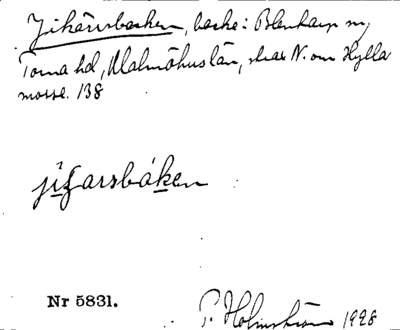 Jikärrsbacken, backe: Blentarp sn,
Torna hd, Malmöhus län, strax N. om Hylla
mosse. 138
jiǥarsbáken
Nr 5831.
P. Holmström 1928